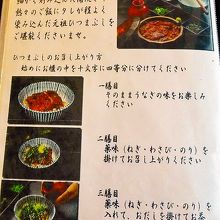 熱々のご飯にタレが程よく
染み込んだ元祖ひつまぶしを
ご堪能くださいませ。
ひつまぶしのお召し上がり方
始めにお櫃の中を十文字に四等分に分けてください
一膳目
そのままうなぎの味をお楽しみ
ください
二膳目
薬味(ねぎ・わさび・のり)を
掛けてお召し上がりください
三膳目
薬味(ねぎ・わさび・のり)を
入れて、おだしを掛けてお茶